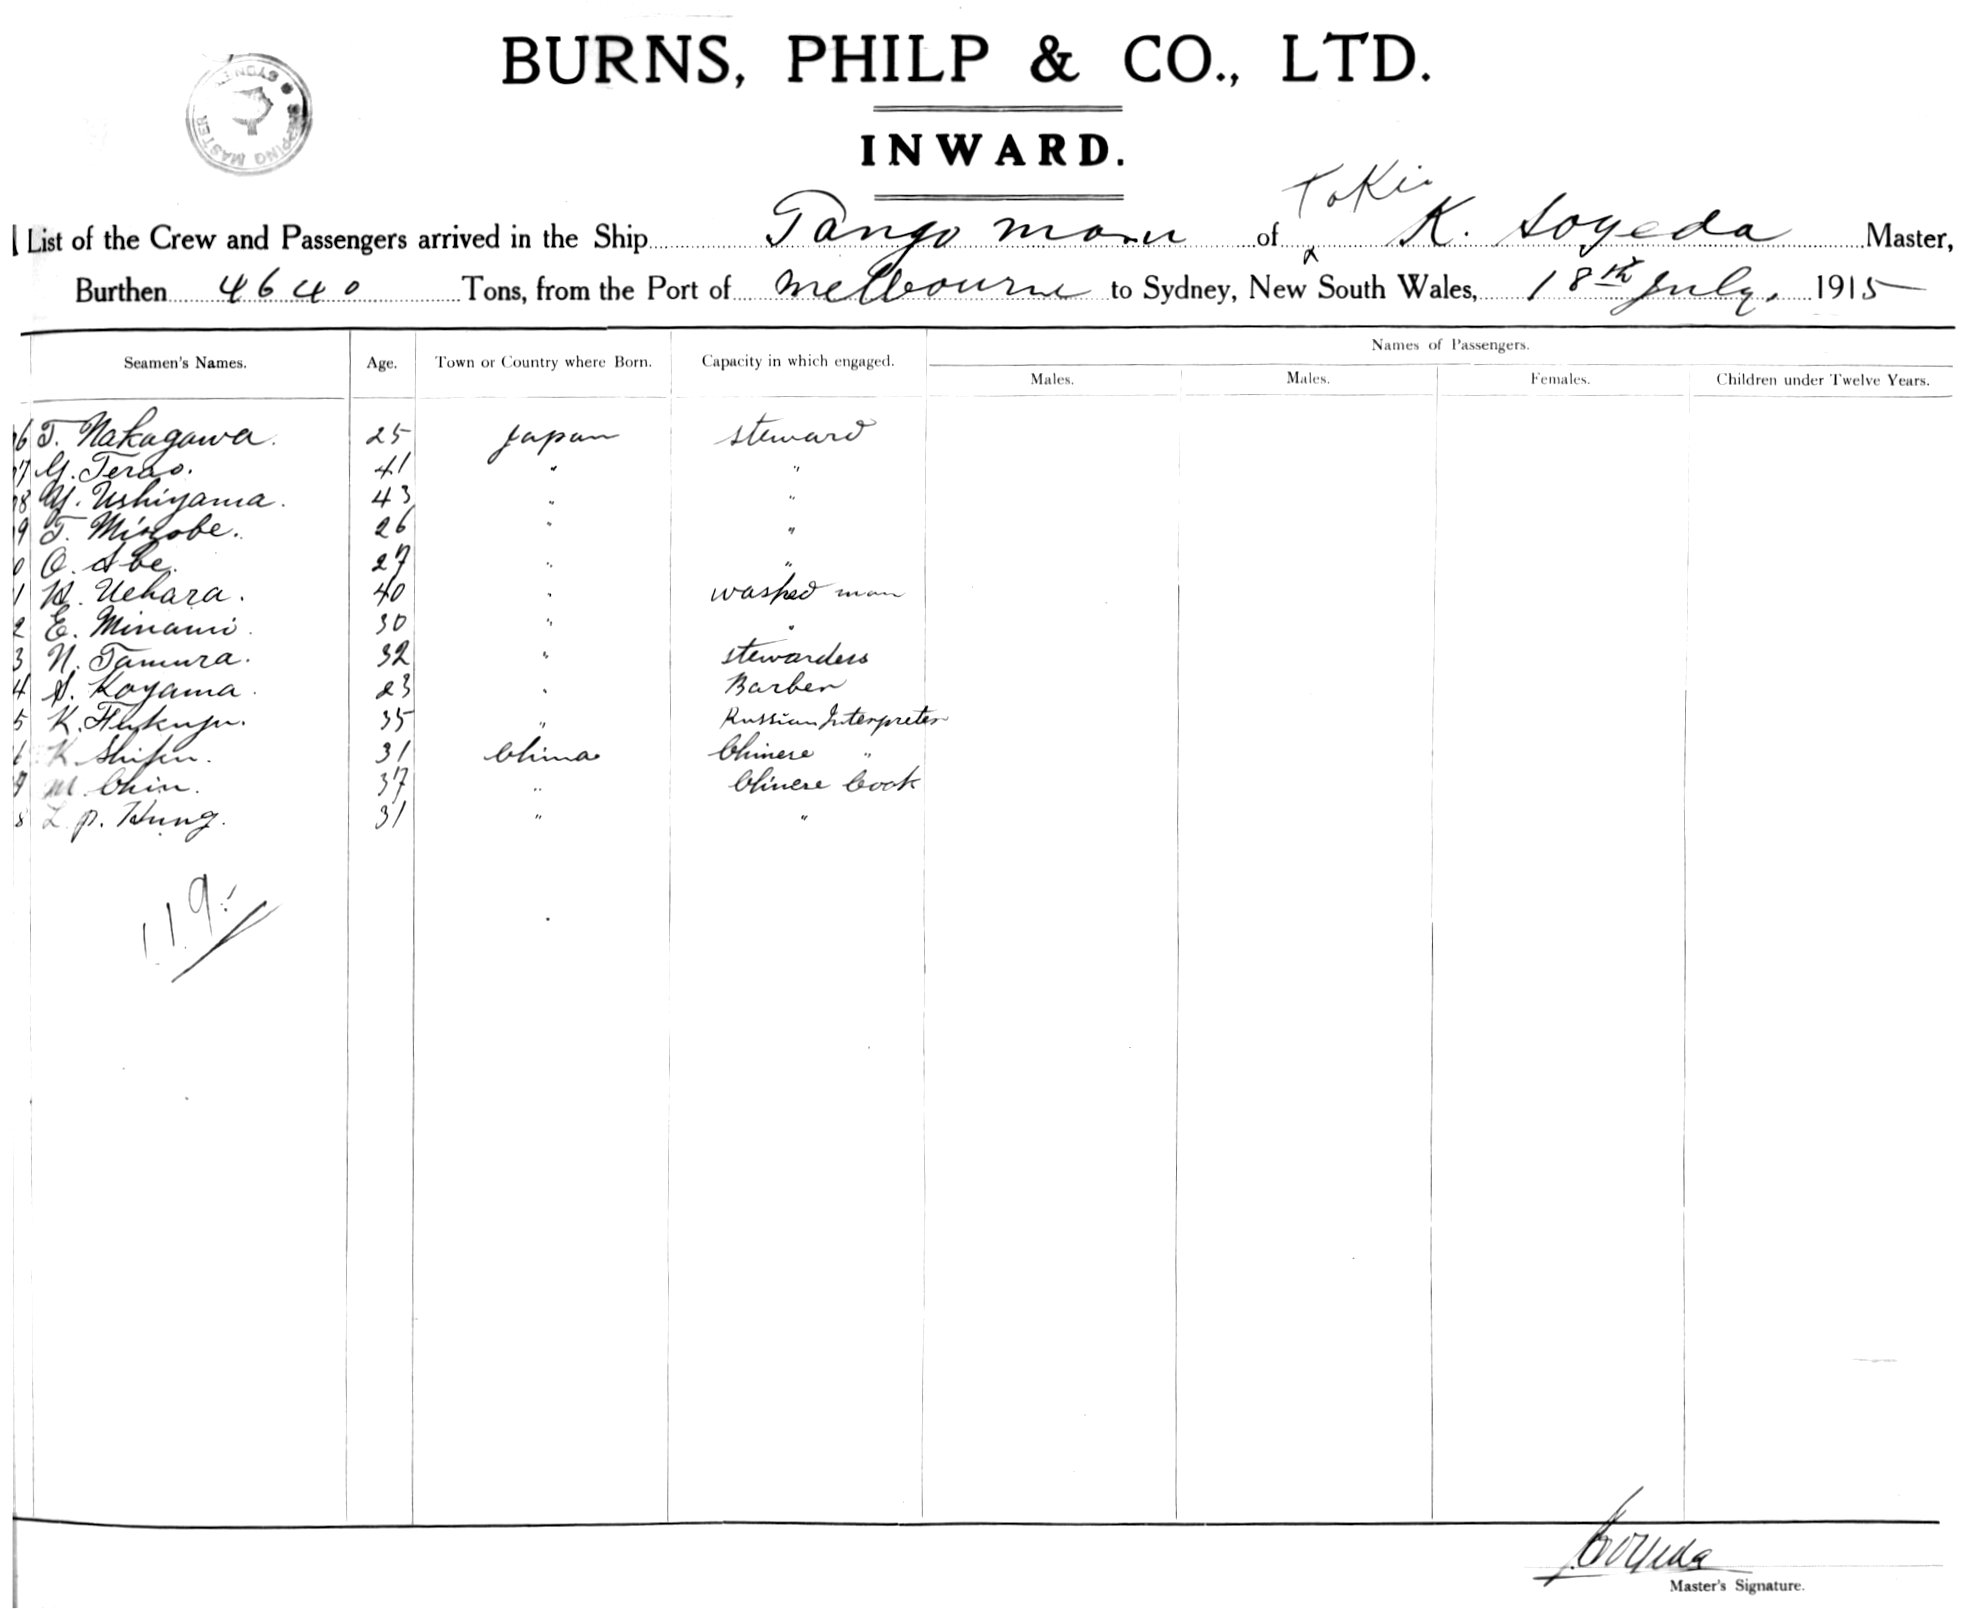 BURNS, PHILP & CO., LTD.
SHIPPING MASTER SYDNEY
INWARD.
List of the Crew and Passengers arrived in the Ship Tango maru of Tokio K. Soyeda Master,
Burthen 4640 Tons, from the Port of Melbourne to Sydney, New South Wales, 18th July, 1915
Seamen's Names. Age. Town or Country where Born. Capacity in which engaged. Names of Passengers.
Males. Males. Females. Children under Twelve Years.
6 T. Nakagawa. 25 Japan steward
7 Y. Terao. 41 " "
8 Y. Ushiyama. 43 " "
9 T. Minobe. 26 " "
0 O. Abe. 27 " "
1 H. Uehara. 40 " washed man
2 E. Minami. 30 " "
3 N. Tamura. 32 " stewardess
4 S. Koyama. 23 " Barber
5 K. 35 " Russian Interpreter
6 K. 31 China Chinese "
7 M. Chin. 37 " Chinese Cook
8 L. P. Hung. 31 " "
119
Soyeda
Master's Signature.